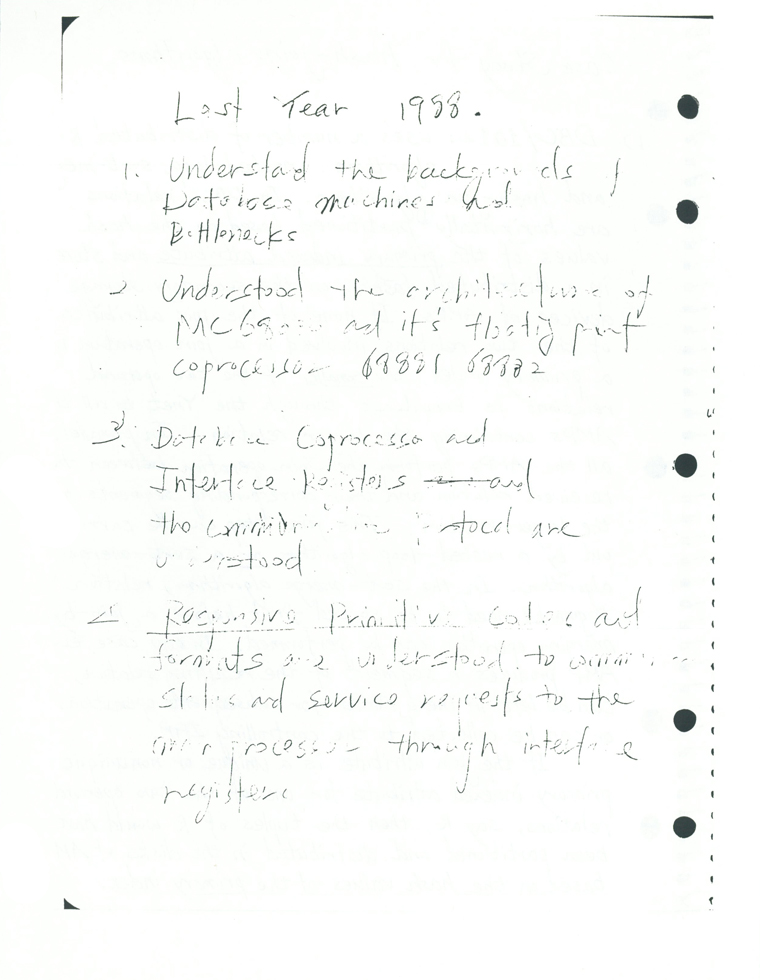 Last Year 1988.
1. Understand the backgrounds of
Database machines and
Bottlenecks
2 Understood the architecture of
MC68020 and it's floatig point
coprocessor 68881 68882
3. Database Coprocessor and
Interface Registers and
the are
understood
Responsive Primitive Codes and
formats are understood to
status and service requests to the
processor through interface
registers